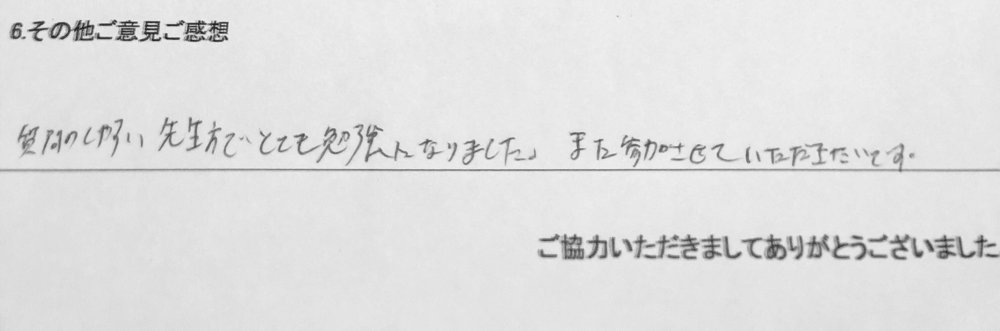 6.その他ご意見ご感想
質問のしやすい先生方でとても勉強になりました。また参加させていただきたいです。
ご協力いただきましてありがとうございました